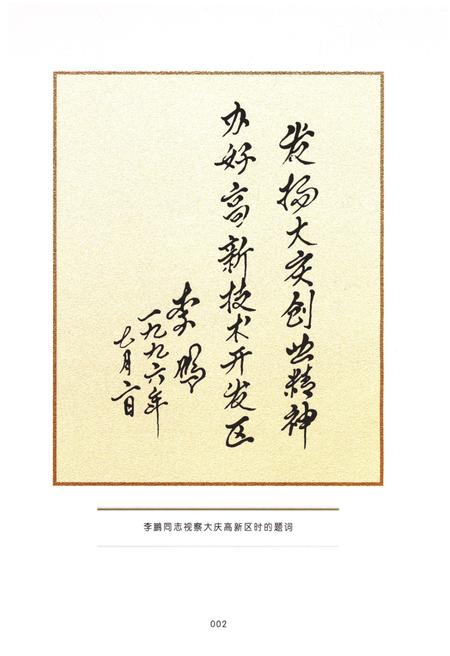 发扬大庆创业精神
办好高新技术开发区
李鹏
一九九六年
七月二日
李鹏同志视察大庆高新区时的题词
002